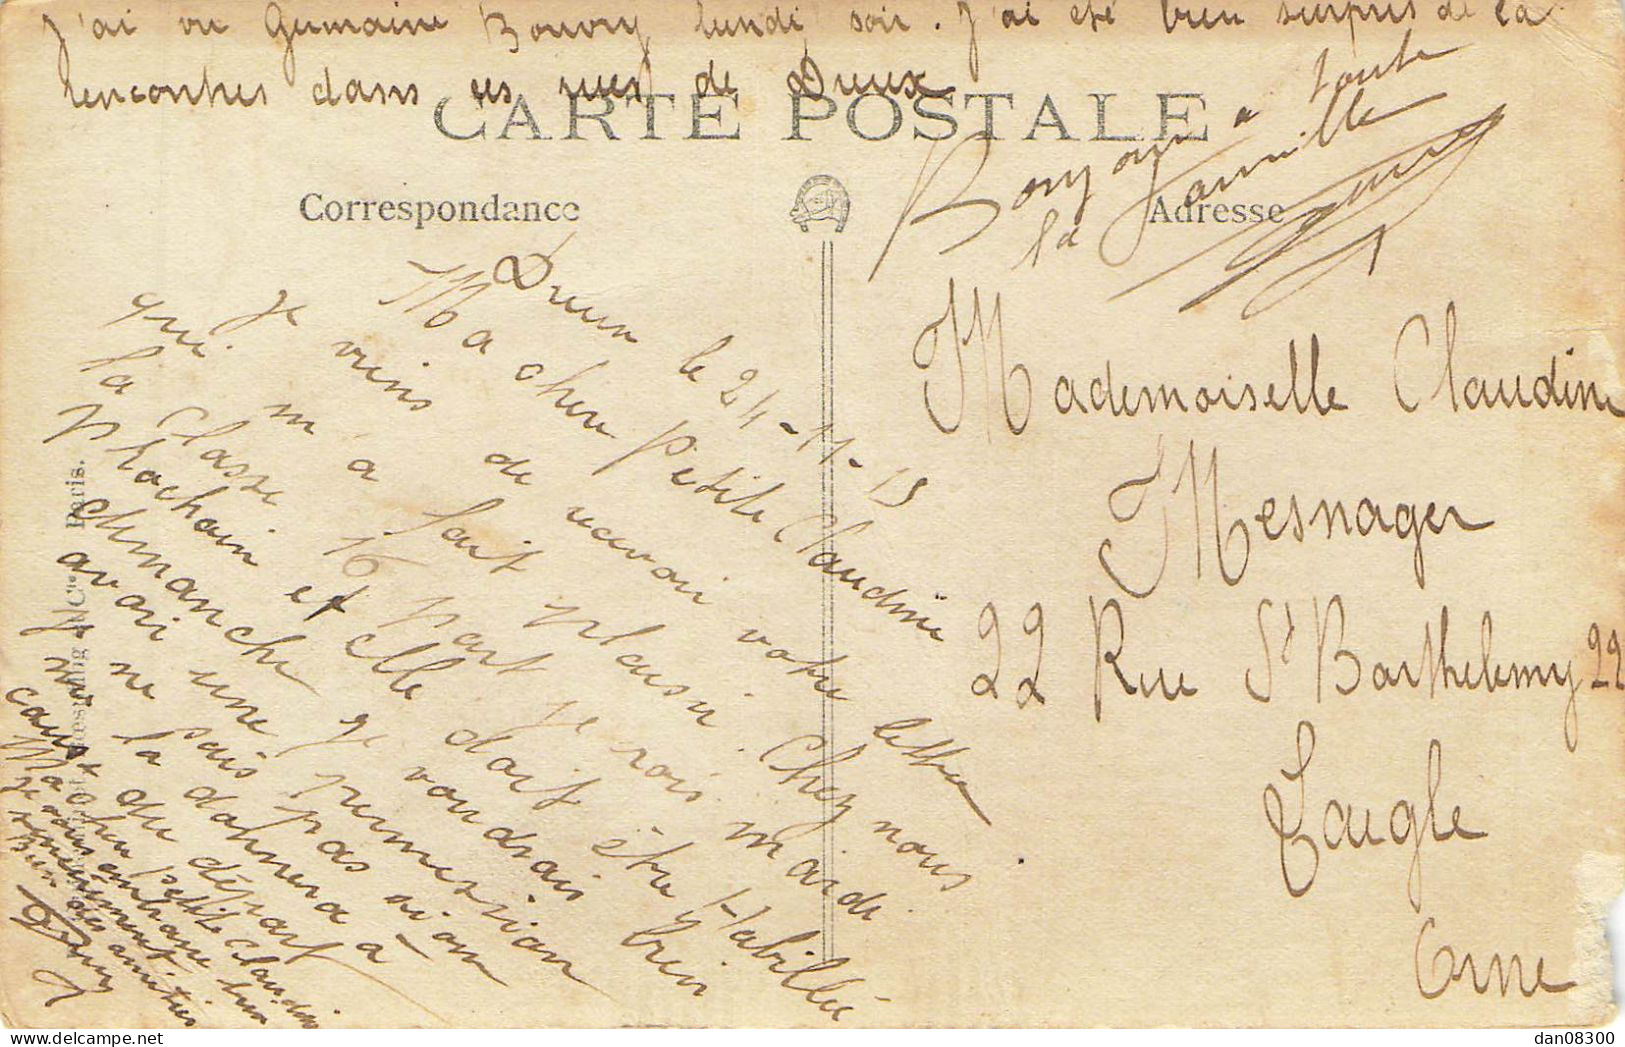 J'ai vu Germaine Bouvry lundi soir. J'ai été bien surpris de la
rencontrer dans les rues de Dreux
CARTE POSTALE
Bonjour à toute
la famille
Correspondance
Adresse
Dreux le 24-11-15
Ma chère Petite Claudine
Je viens de recevoir votre lettre
qui m'a fait plaisir. Chez nous
la classe 16 part je crois mardi
prochain et elle doit être Habillée
dimanche je voudrais bien
avoir une permission
je ne sais pas si on
me la donnera à
cause du départ
Ma chère petite Claudine
je vous embrasse bien
Bien des amitiés
Paris.
Mademoiselle Claudine
Mesnager
22 Rue St Barthelemy 22
Laigle
Orne
dan08300